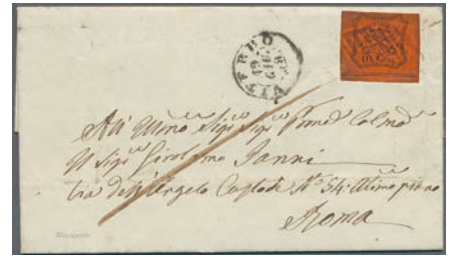 VITERBO
19 GIU 68
10 CENT
All' Illmo Sigr Sigr Prone Colmo
Il Sigr Girolamo Janni
Via dell'Angelo Custode No 54. Ultimo piano
Roma